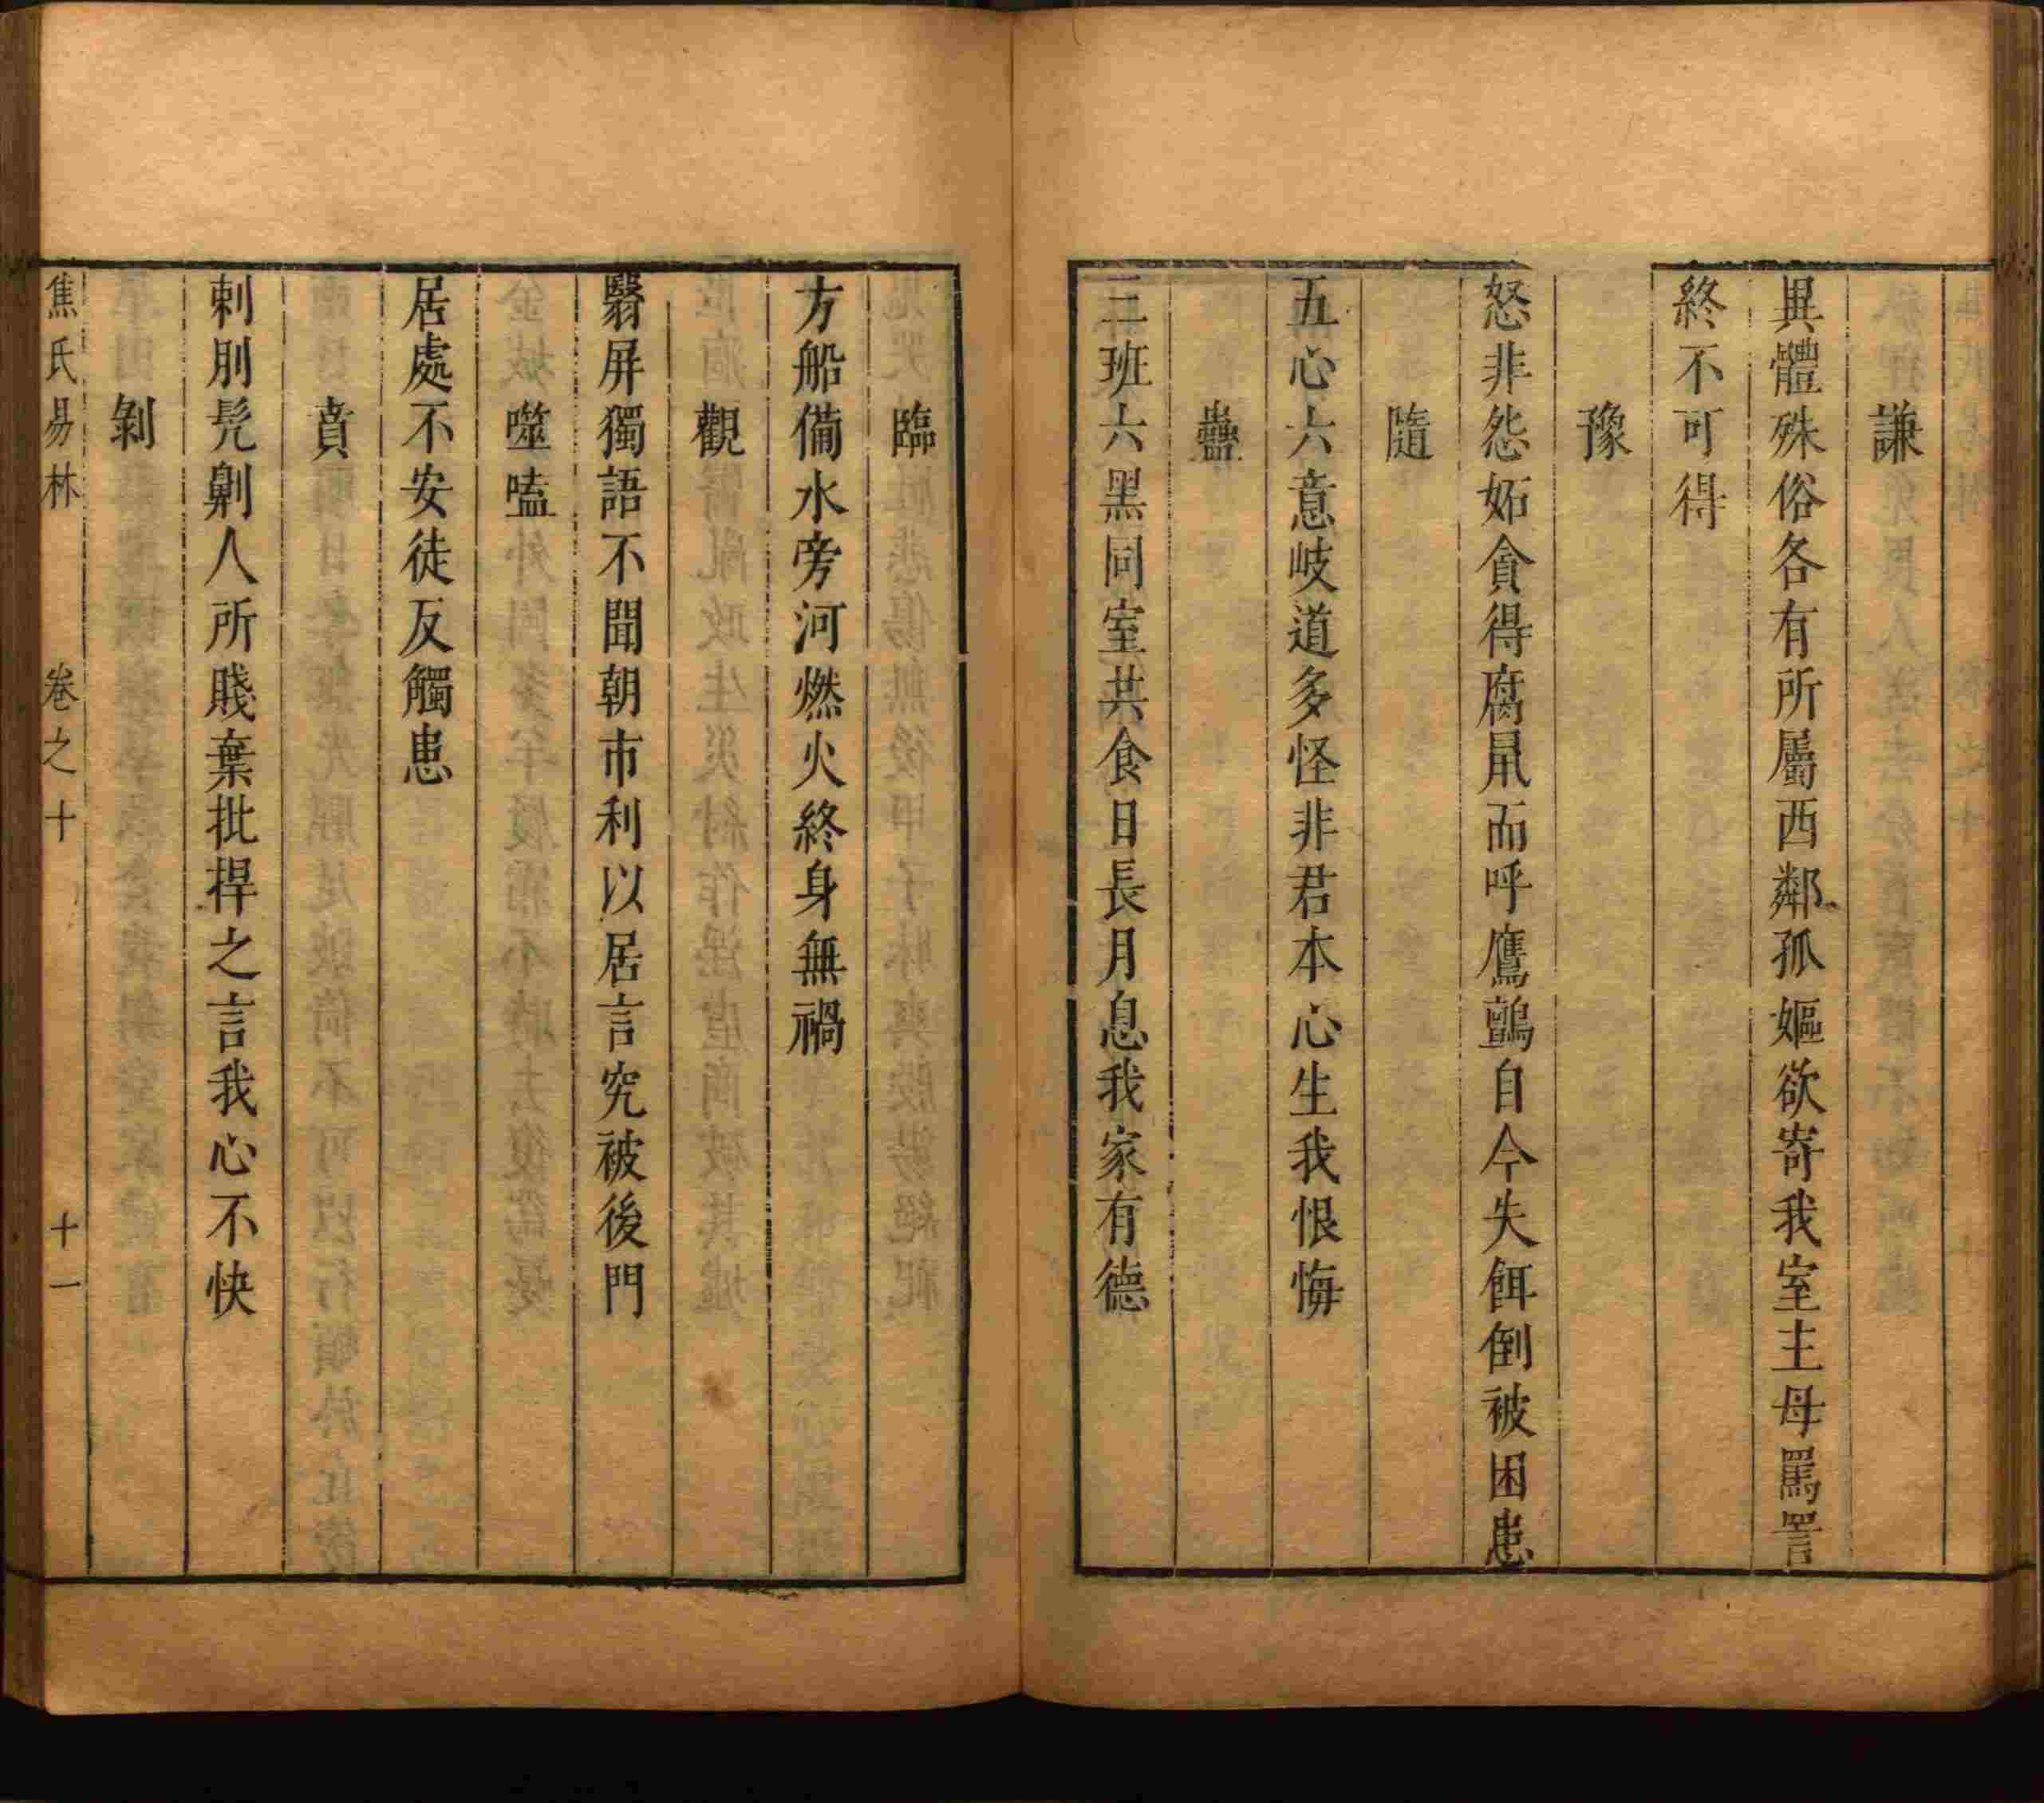 謙
異體殊俗各有所屬西鄰孤嫗欲寄我室主母罵詈
終不可得
豫
怒非怨妬貪得腐鼠而呼鷹鸇自令失餌倒被困患
隨
五心六意岐道多怪非君本心生我恨悔
蠱
三班六黑同室共食日長月息我家有德
臨
方船備水旁河燃火終身無禍
觀
翳屏獨語不聞朝市利以居言究被後門
噬嗑
居處不安徒反觸患
賁
刺刖髡劓人所賤棄批捍之言我心不快
剝
焦氏易林 卷之十 十一